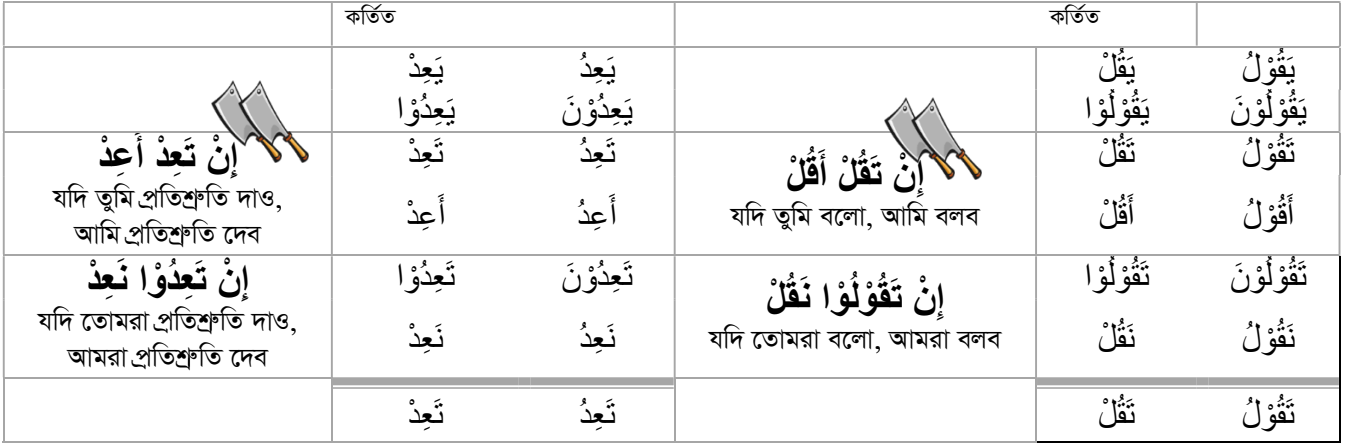 কর্তিত কর্তিত
يَعِدْ يَعِدُ يَقُلْ يَقُوْلُ
يَعِدُوْا يَعِدُوْنَ يَقُوْلُوْا يَقُوْلُوْنَ
إِنْ تَعِدْ أَعِدْ
যদি তুমি প্রতিশ্রুতি দাও,
আমি প্রতিশ্রুতি দেব
تَعِدْ تَعِدُ
أَعِدْ أَعِدُ
إِنْ تَقُلْ أَقُلْ
যদি তুমি বলো, আমি বলব
تَقُلْ تَقُوْلُ
أَقُلْ أَقُوْلُ
إِنْ تَعِدُوْا نَعِدْ
যদি তোমরা প্রতিশ্রুতি দাও,
আমরা প্রতিশ্রুতি দেব
تَعِدُوْا تَعِدُوْنَ
نَعِدْ نَعِدُ
إِنْ تَقُوْلُوْا نَقُلْ
যদি তোমরা বলো, আমরা বলব
تَقُوْلُوْا تَقُوْلُوْنَ
نَقُلْ نَقُوْلُ
تَعِدْ تَعِدُ تَقُلْ تَقُوْلُ